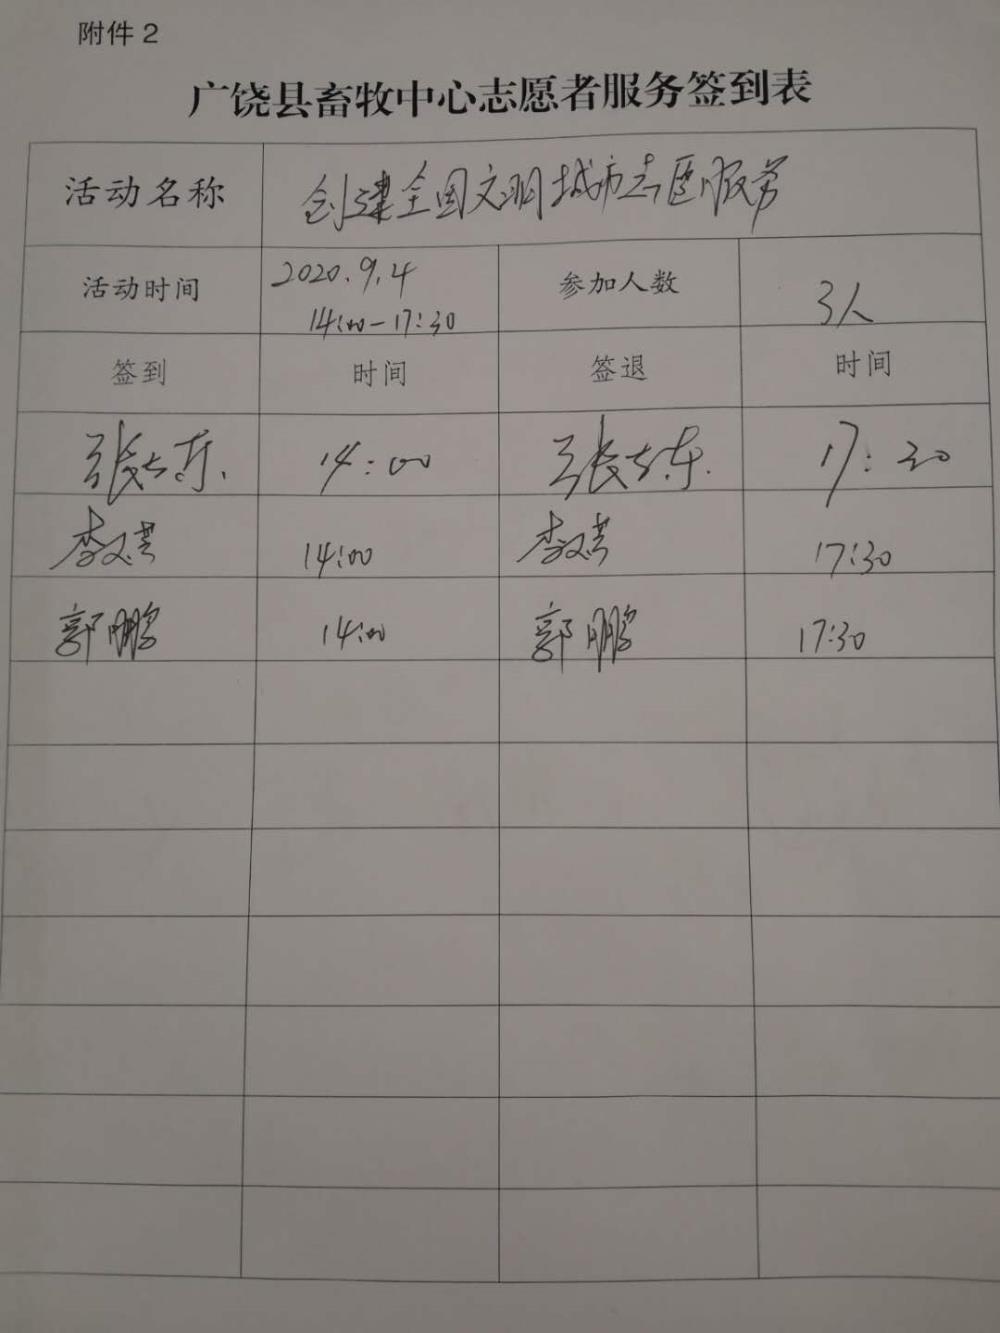 附件 2
广饶县畜牧中心志愿者服务签到表
活动名称 创建全国文明城市志愿服务
活动时间 2020.9.4 参加人数 3人
14:00-17:30
签到 时间 签退 时间
张 东 14:00 张 东 17:30
李文 14:00 李文 17:30
郭鹏 14:00 郭鹏 17:30